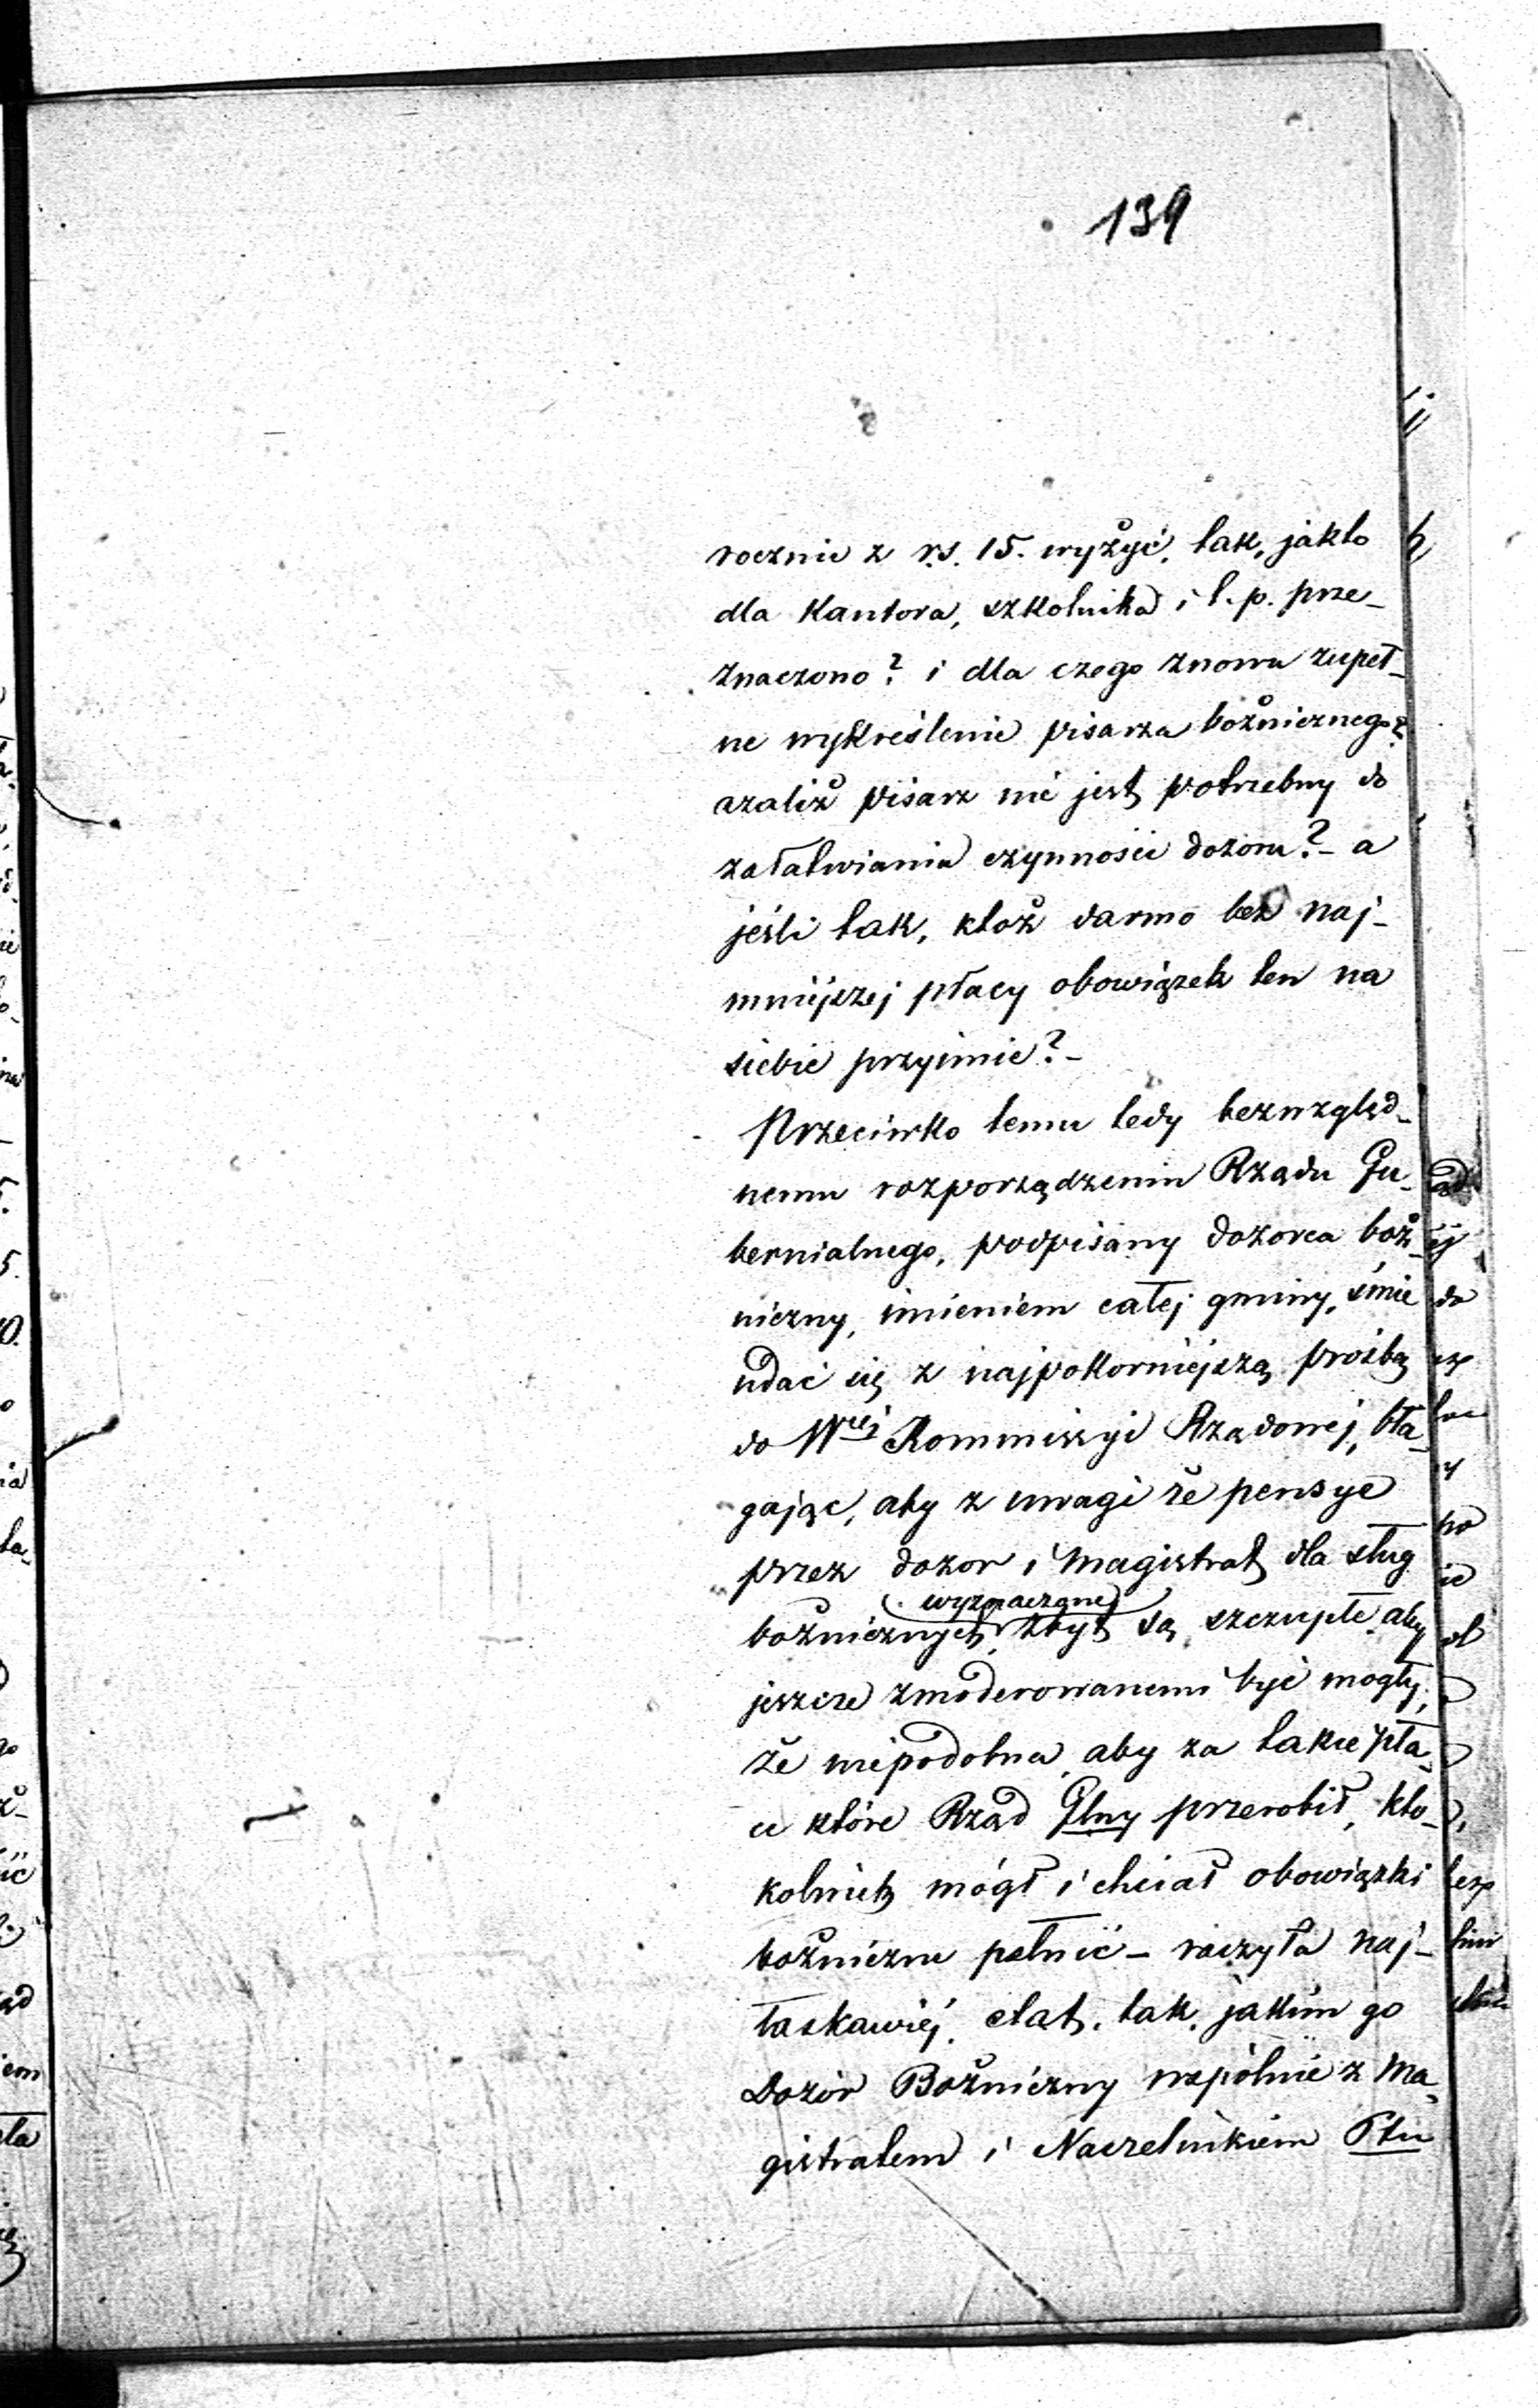 139
rocznie z rs. 15. wyżyć, tak, jak to
dla Kantora, szkolnika i t. p. prze-
znaczono? i dla czego znowu zupeł-
ne wykreślenie pisarza bożnicznego?
azaliż pisarz nie jest potrzebny do
załatwiania czynności dozoru? - a
jeśli tak, któż darmo bez naj-
mniejszej płacy obowiązek ten na
siebie przyimie? -
Przeciwko temu tedy bezwzględ-
nemu rozporządzeniu Rządu Gu-
bernialnego, podpisany dozorca boż-
niczny, imieniem całej gminy, śmie
udać się z najpokorniejszą prośbą
do Wnéj Kommissyi Rządowej, bła-
gając, aby z uwagi że pensye
przez dozor i Magistrat dla sług
wyznaczone
bożnicznych zbyt są szczupłe aby
jeszcze zmoderowanemi być mogły,
że niepodobna, aby za takie pła-
ce które Rząd Glny przerobił, kto-
kolwiek mógł i chciał obowiązki
bożniczne pełnić - raczyła naj-
łaskawiéj, etat, tak, jakim go
Dozór Bożniczny wspólnie z Ma-
gistratem i Naczelnikiem Ptu